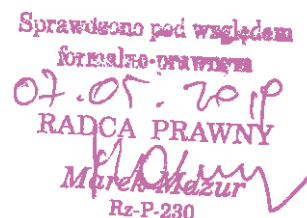 Sprawdzono pod względem
formalno-prawnym
07.05.2018
RADCA PRAWNY
Marek Mazur
Rz-P-230